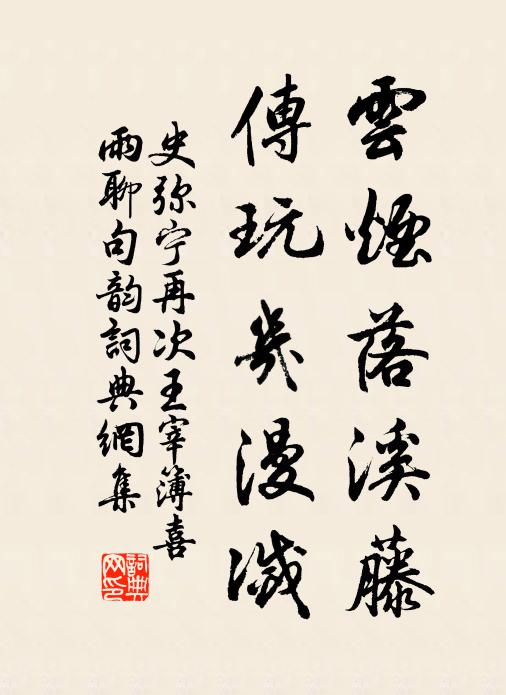 雲煙落溪藤
傳玩幾漫滅
史弥宁再次王宰簿喜
雨聊句韵詞典網集
詞典網印